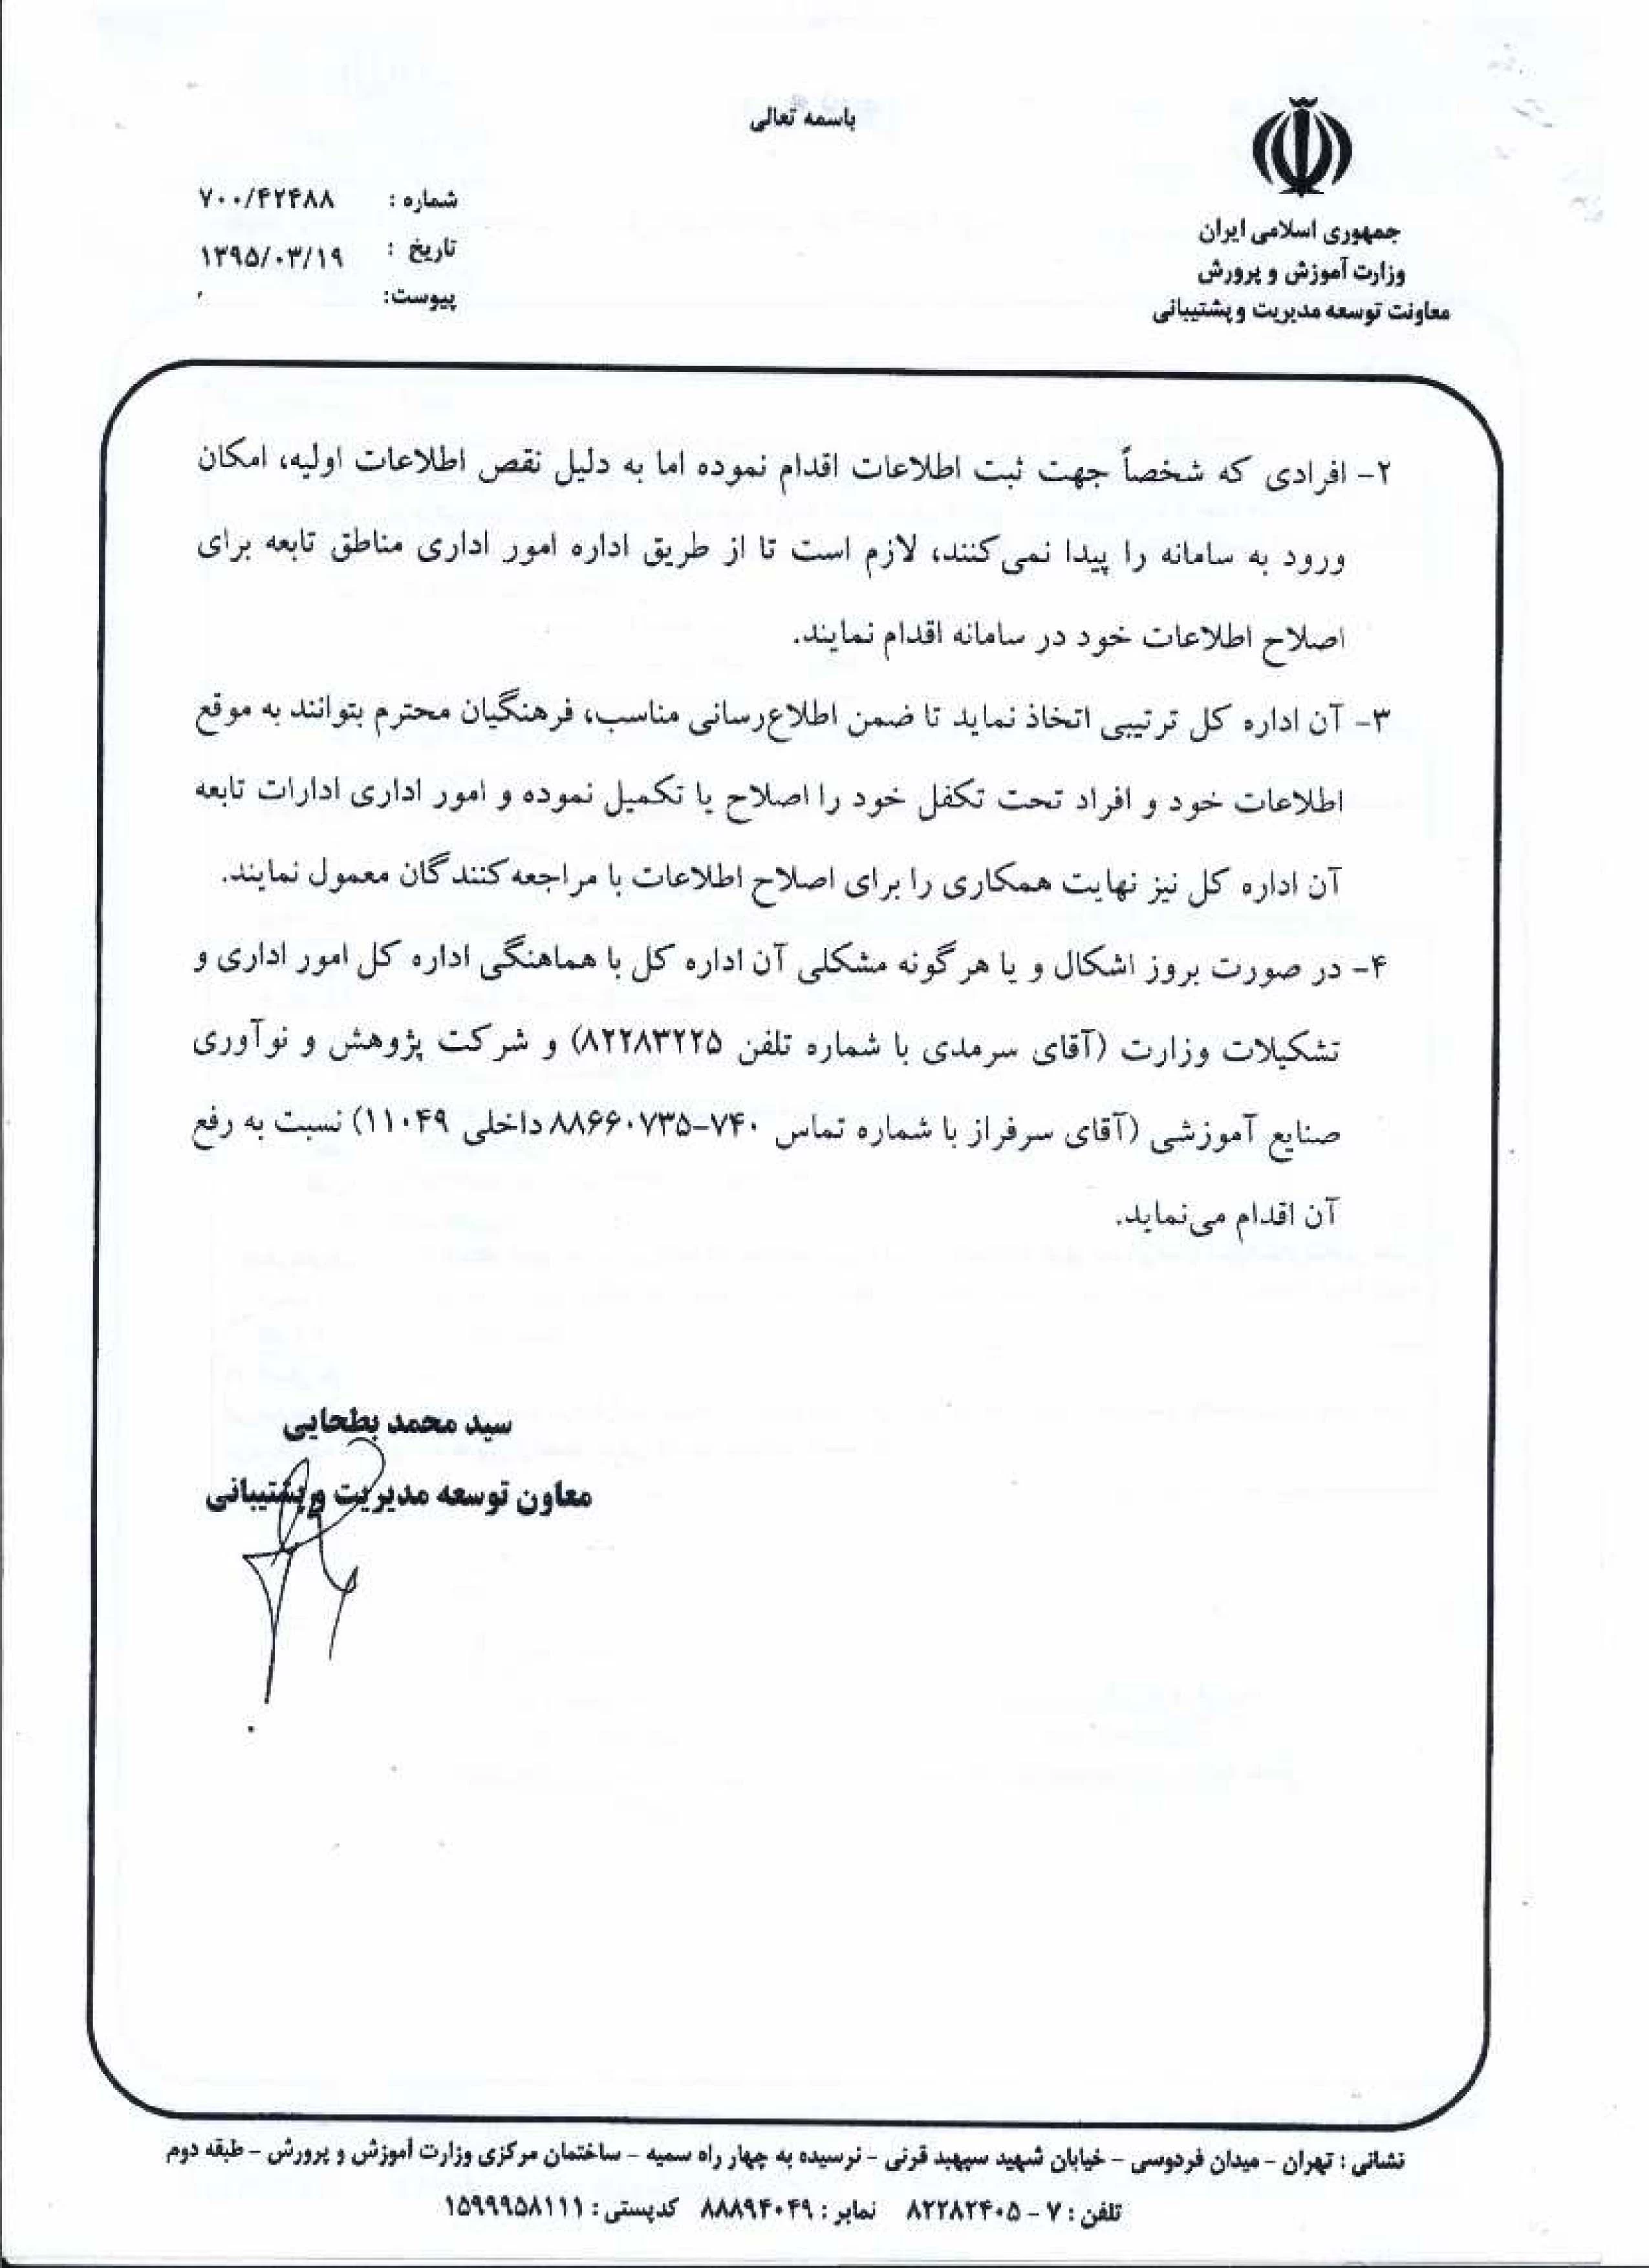 باسمه تعالی
جمهوری اسلامی ایران
وزارت آموزش و پرورش
معاونت توسعه مدیریت و پشتیبانی
شماره : ۷۰۰/۴۲۴۸۸
تاریخ : ۱۳۹۵/۰۳/۱۹
پیوست:
۲- افرادی که شخصاً جهت ثبت اطلاعات اقدام نموده اما به دلیل نقص اطلاعات اولیه، امکان
ورود به سامانه را پیدا نمی‌کنند، لازم است تا از طریق اداره امور اداری مناطق تابعه برای
اصلاح اطلاعات خود در سامانه اقدام نمایند.
۳- آن اداره کل ترتیبی اتخاذ نماید تا ضمن اطلاع‌رسانی مناسب، فرهنگیان محترم بتوانند به موقع
اطلاعات خود و افراد تحت تکفل خود را اصلاح یا تکمیل نموده و امور اداری ادارات تابعه
آن اداره کل نیز نهایت همکاری را برای اصلاح اطلاعات با مراجعه‌کنندگان معمول نمایند.
۴- در صورت بروز اشکال و یا هر گونه مشکلی آن اداره کل با هماهنگی اداره کل امور اداری و
تشکیلات وزارت (آقای سرمدی با شماره تلفن ۸۲۲۸۳۲۲۵) و شرکت پژوهش و نوآوری
صنایع آموزشی (آقای سرفراز با شماره تماس ۷۴۰-۸۸۶۶۰۷۳۵ داخلی ۱۱۰۴۹) نسبت به رفع
آن اقدام می‌نماید.
سید محمد بطحایی
معاون توسعه مدیریت و پشتیبانی
نشانی : تهران - میدان فردوسی - خیابان شهید سپهبد قرنی - نرسیده به چهار راه سمیه - ساختمان مرکزی وزارت آموزش و پرورش - طبقه دوم
تلفن : ۷ - ۸۲۲۸۲۴۰۵ نمابر : ۸۸۸۹۴۰۴۹ کدپستی : ۱۵۹۹۹۵۸۱۱۱